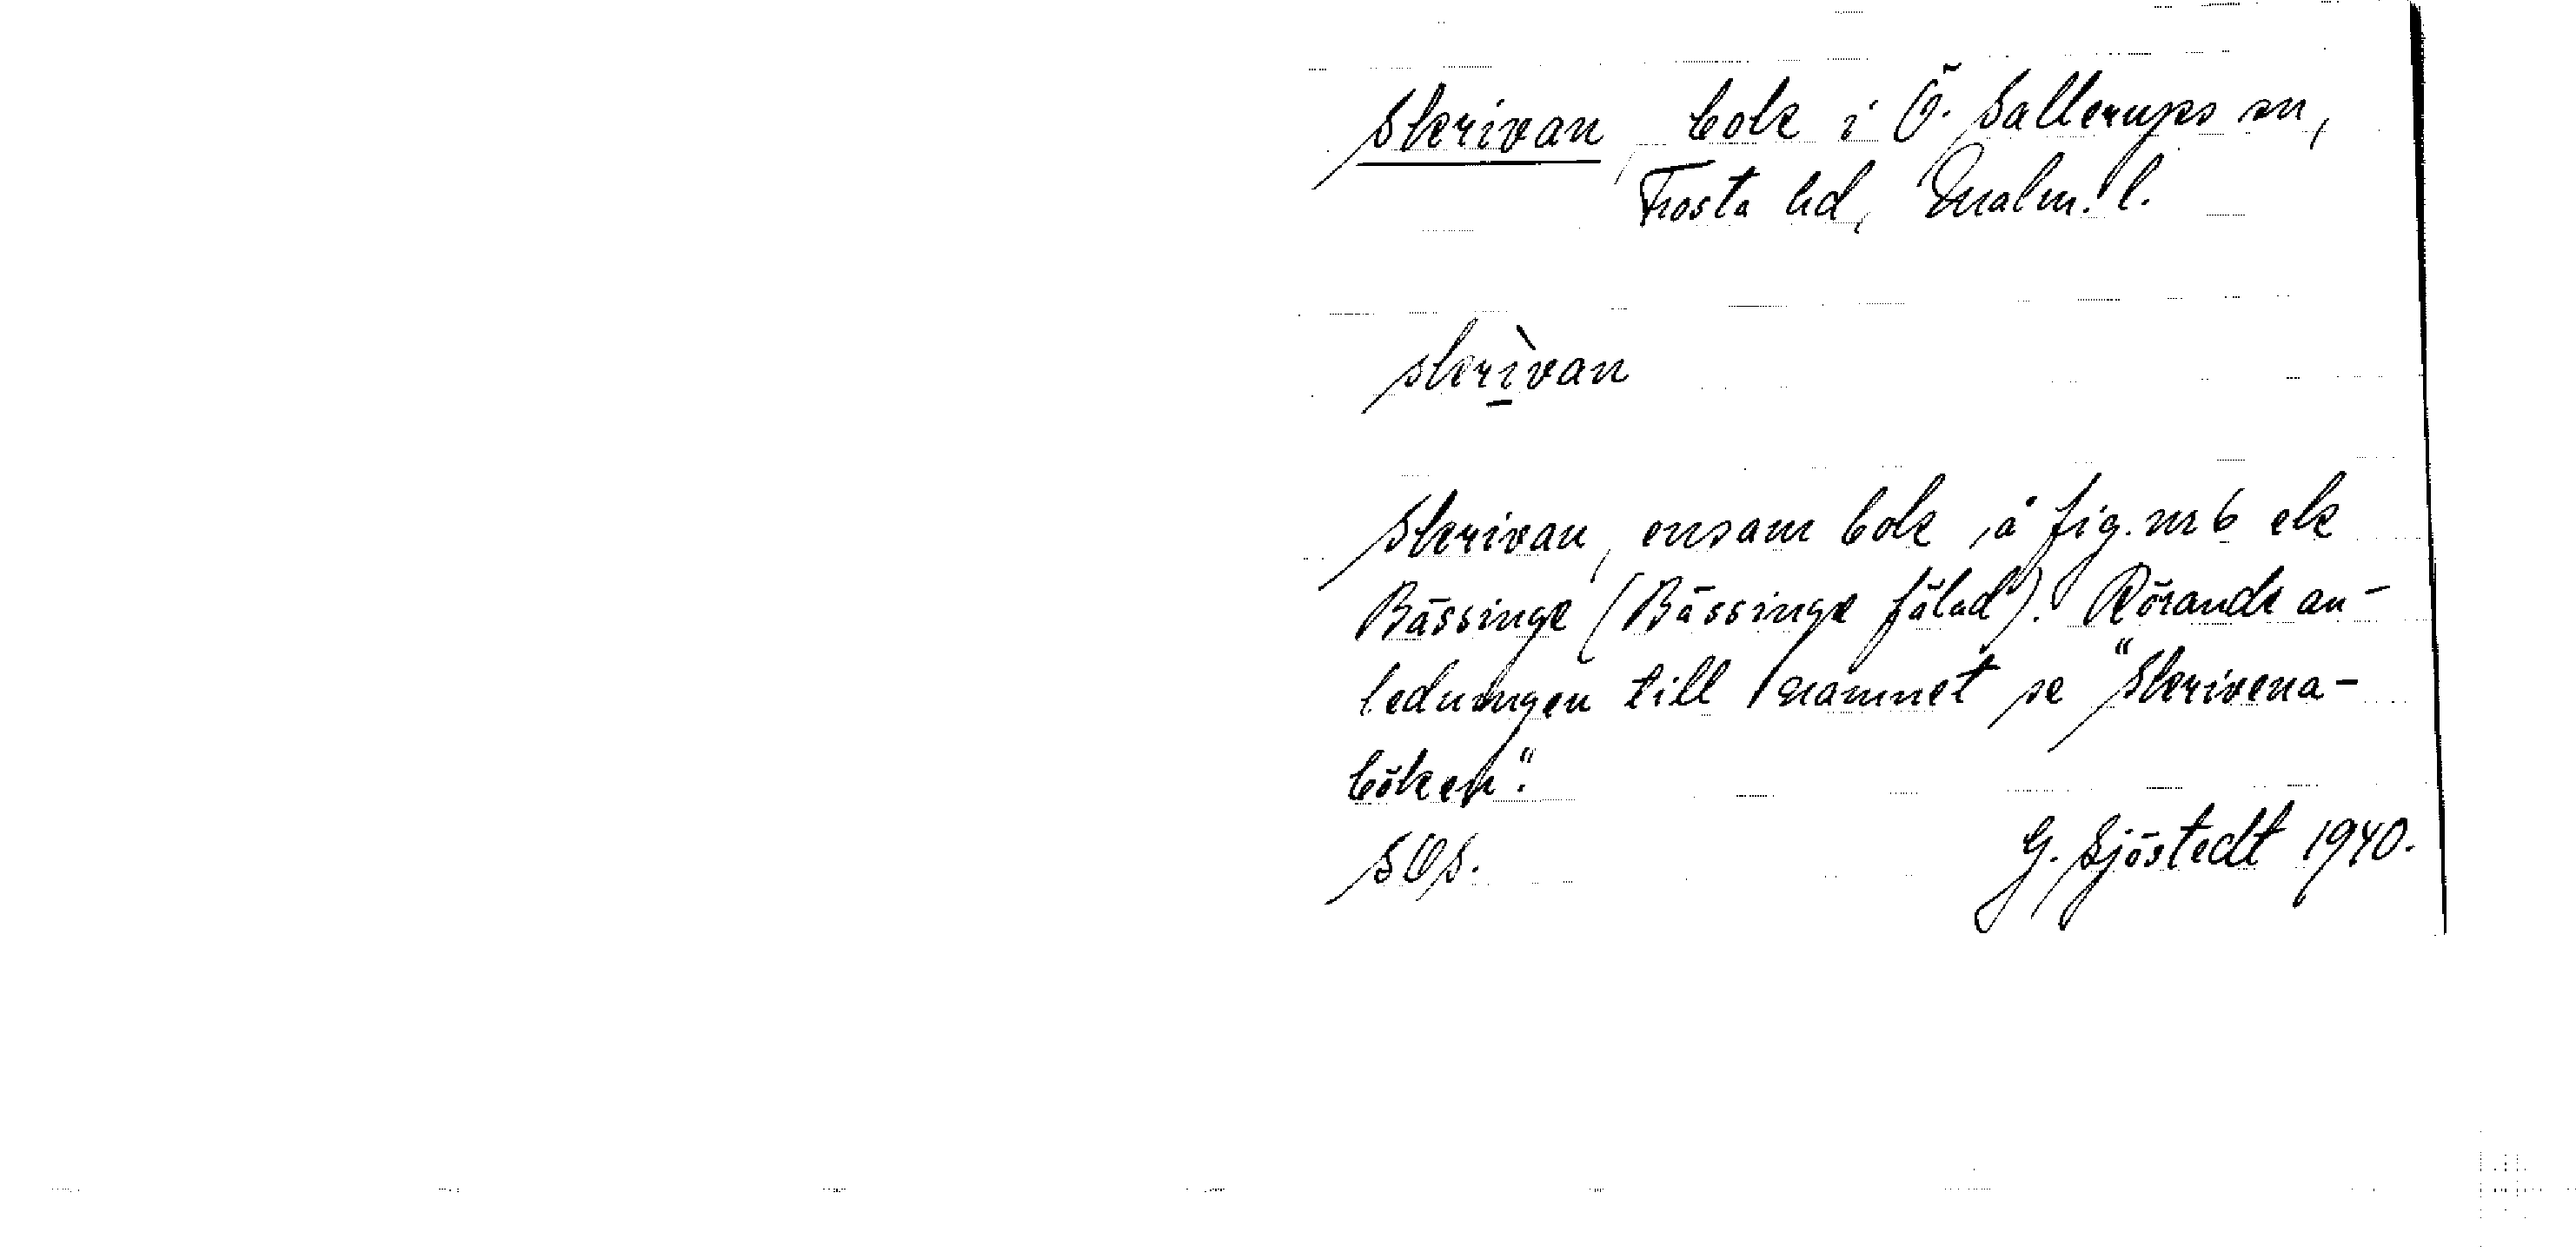 Skrivan, bok i Ö. Sallerups sn,
Frosta hd, Malm. l.
skrìvan
Skrivan, ensam bok, å fig. nr 6 ek
Bässinge (Bässinge fälad). Rörande an-
ledningen till namnet se "Skrivena-
böken".
SOS.
G. Sjöstedt 1940.